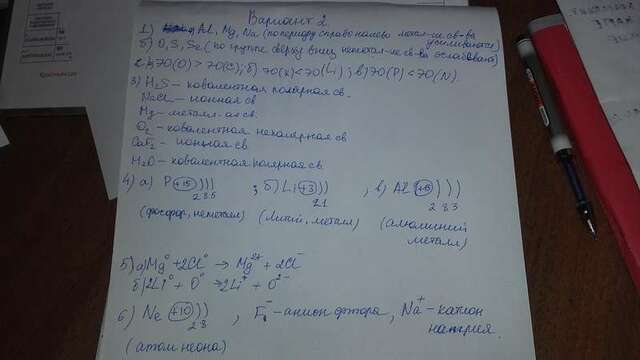 Вариант 2
1) Al, Mg, Na (по периоду справо налево метал-ие св-ва усиливаются)
б) O, S, Se (по группе сверху вниз неметал-ие св-ва ослабевают)
ЭО(O) > ЭО(C); б) ЭО(K) < ЭО(Li); в) ЭО(P) < ЭО(N)
3) H2S – ковалентная полярная св.
NaCl – ионная св
Mg – металл-ая св.
O2 – ковалентная неполярная св
CaF2 – ионная св
H2O – ковалентная полярная св.
4) а) P +15 ))) ; б) Li +3 )) , в) Al )))
2 8 5 2 1 2 8 3
(фосфор, неметалл) (Литий, металл) (алюминий металл)
5) а) Mg⁰ + 2Cl⁰ → Mg²⁺ + 2Cl⁻
б) 2Li⁰ + O⁰ → 2Li⁺ + O²⁻
6) Ne +10 )) , F⁻ – анион фтора, Na⁺ – катион натрия.
2 8
(атом неона)